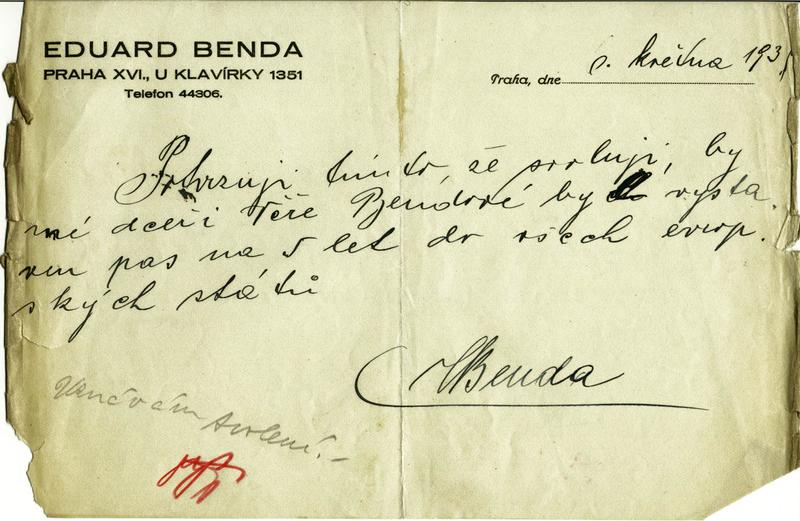 EDUARD BENDA
PRAHA XVI., U KLAVÍRKY 1351
Telefon 44306.
Praha, dne 5. května 1935
Potvrzuji tímto, že svoluji, by
mé dceři Věře Bendové byl vysta-
ven pas na 5 let do všech evrop-
ských států
Benda
svolení.-